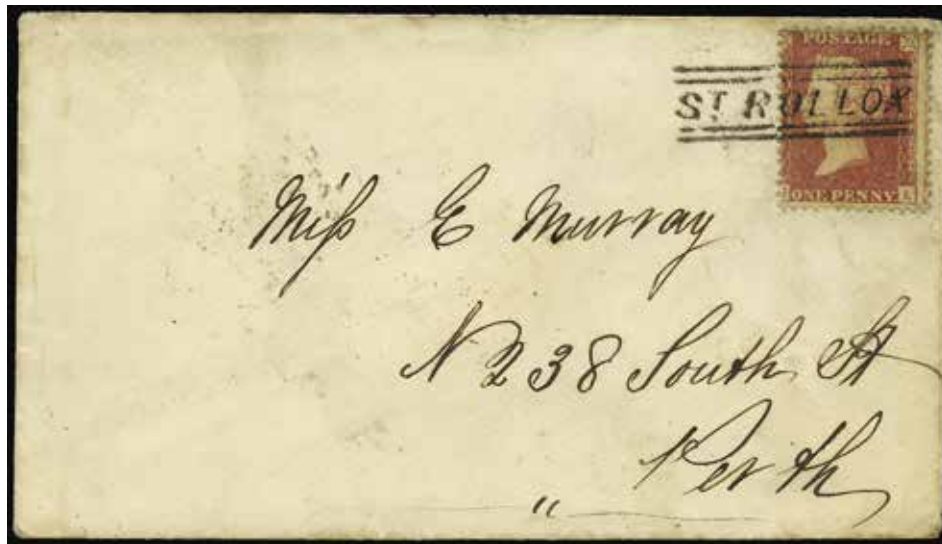 POSTAGE
ST ROLLOX
ONE PENNY
Miſs E Murray
N 238 South St
Perth
"